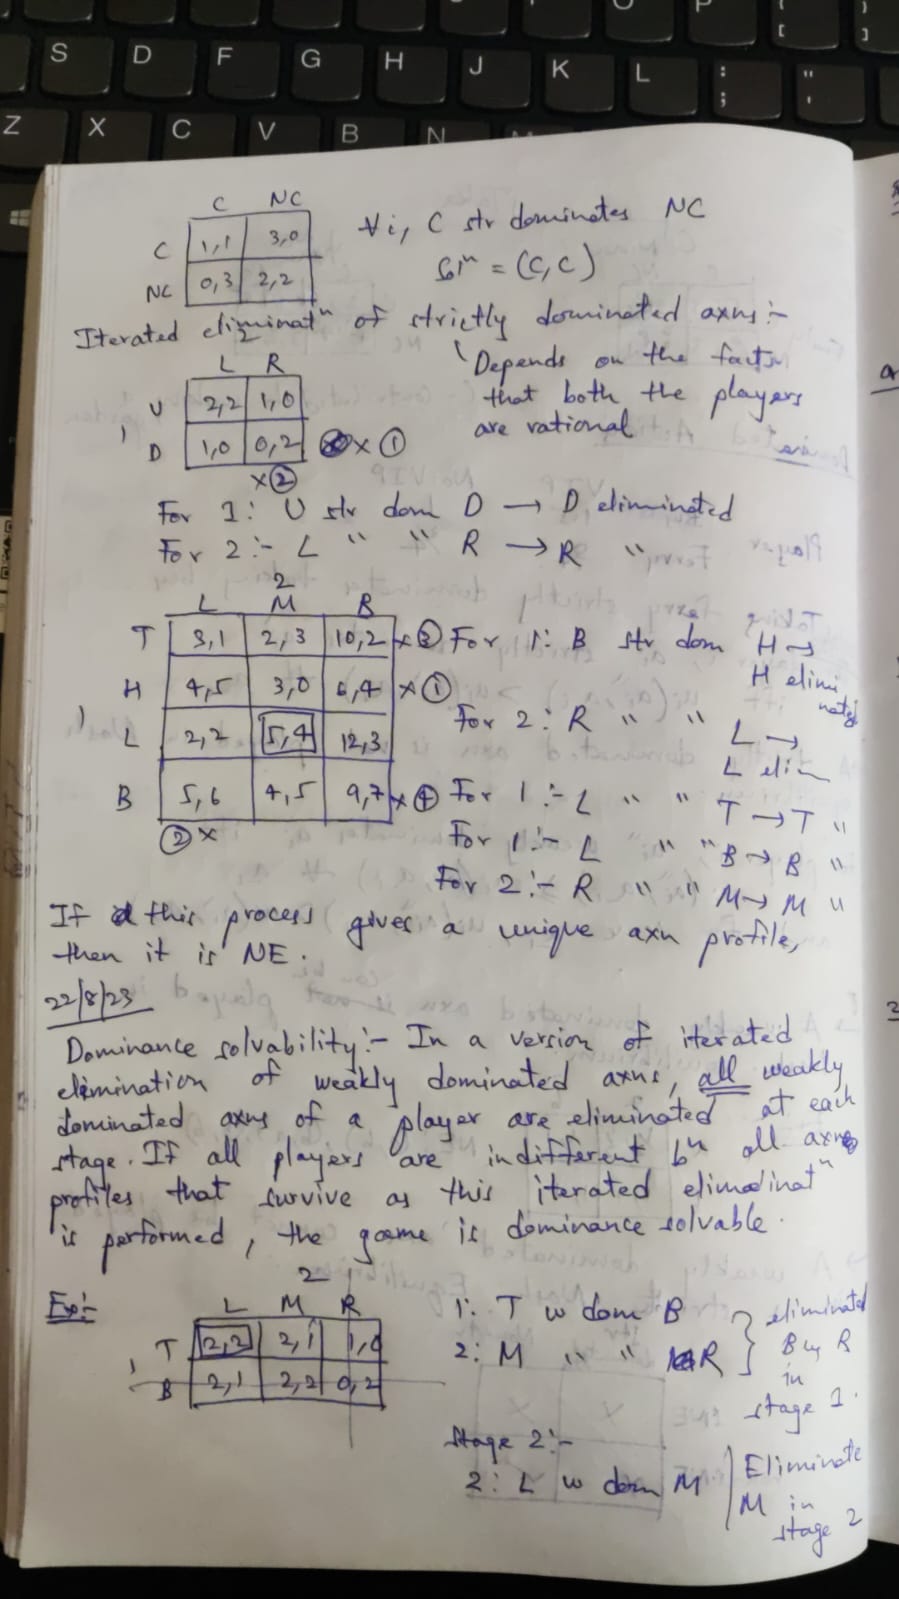 S D F G H J K L : ;
Z X C V B N
C NC
C 1,1 3,0
NC 0,3 2,2
∀i, C str dominates NC
Slⁿ = (C,C)
Iterated eliminatⁿ of strictly dominated axns :-
Depends on the facts
that both the players
are rational
2
L R
U 2,2 1,0
1
D 1,0 0,2 x ①
x ②
For 1: U str dom D → D eliminated
For 2:- L " " R → R "
2
L M B
T 3,1 2,3 10,2 x ③
H 4,5 3,0 6,4 x ①
1
L 2,2 5,4 12,3
B 5,6 4,5 9,7 x ④
② x
For 1: B str dom H →
H elimi
nated
For 2: R " " L →
L elim
For 1:- L " " T → T "
For 1:- L " " B → B "
For 2:- R " " M → M "
If this process gives a unique axn profile,
then it is NE.
22/8/23
Dominance solvability:- In a version of iterated
elimination of weakly dominated axns, all weakly
dominated axns of a player are eliminated at each
stage. If all players are indifferent bⁿ all axn
profiles that survive as this iterated elimadinatⁿ
is performed, the game is dominance solvable.
Ex:-
2
L M R
T 2,2 2,1 1,0
1
B 2,1 2,2 0,2
1: T w dom B
2: M " " R
eliminated
B & R
in
stage 1.
Stage 2:-
2: L w dom M
Eliminate
M in
stage 2